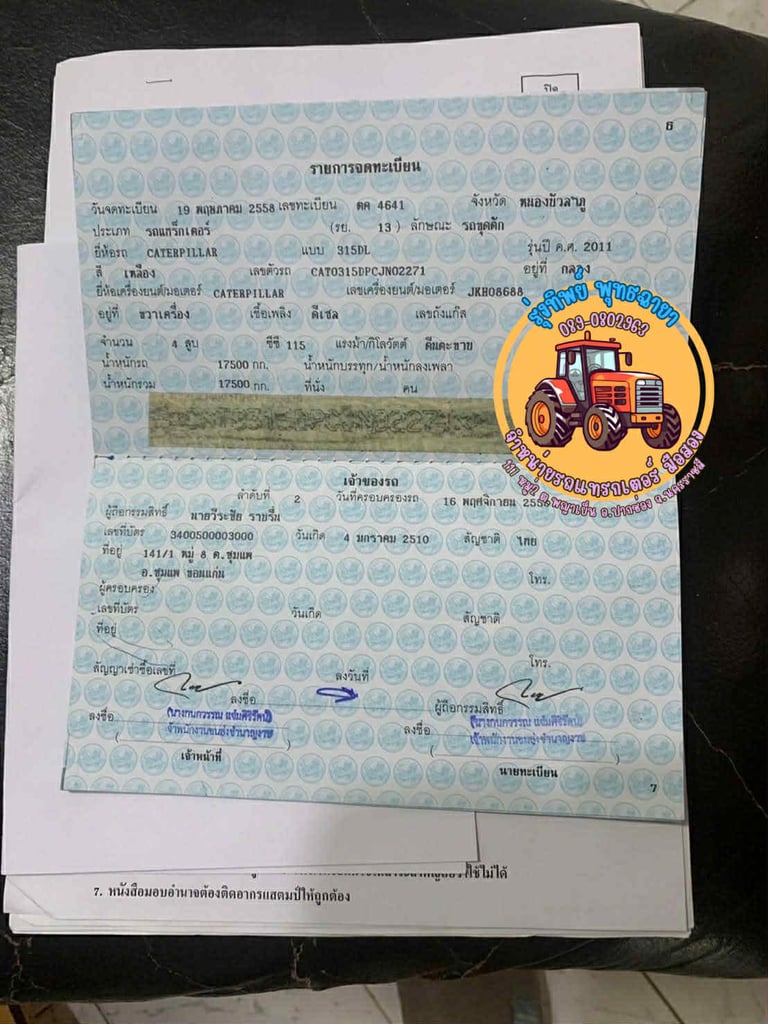 ปิด
6
รายการจดทะเบียน
วันจดทะเบียน 19 พฤษภาคม 2558 เลขทะเบียน ตค 4641 จังหวัด หนองบัวลำภู
ประเภท รถแทร็กเตอร์ (รย. 13) ลักษณะ รถขุดตัก
ยี่ห้อรถ CATERPILLAR แบบ 315DL รุ่นปี ค.ศ. 2011
สี เหลือง เลขตัวรถ CATO315DPCJN02271 อยู่ที่ กลาง
ยี่ห้อเครื่องยนต์/มอเตอร์ CATERPILLAR เลขเครื่องยนต์/มอเตอร์ JKH08688
อยู่ที่ ขวาเครื่อง เชื้อเพลิง ดีเซล เลขถังแก๊ส
จำนวน 4 สูบ ซีซี 115 แรงม้า/กิโลวัตต์ ตีนตะขาบ
น้ำหนักรถ 17500 กก. น้ำหนักบรรทุก/น้ำหนักลงเพลา
น้ำหนักรวม 17500 กก. ที่นั่ง คน
รุ่งทิพย์ พุทธฉายา
089-0802963
จำหน่ายรถแทรกเตอร์ มือสอง
ต.พญาเย็น อ.ปากช่อง จ.นครราชสีมา
เจ้าของรถ
ลำดับที่ 2 วันที่ครอบครองรถ 16 พฤศจิกายน
ผู้ถือกรรมสิทธิ์ นายวีระชัย ราบรื่น
เลขที่บัตร 3400500003000 วันเกิด 4 มกราคม 2510 สัญชาติ ไทย
ที่อยู่ 141/1 หมู่ 8 ต.ชุมแพ
อ.ชุมแพ ขอนแก่น โทร.
ผู้ครอบครอง
เลขที่บัตร วันเกิด สัญชาติ
ที่อยู่
โทร.
สัญญาเช่าซื้อเลขที่ ลงวันที่
ลงชื่อ ผู้ถือกรรมสิทธิ์
ลงชื่อ (นางกนกวรรณ แช่มศิริรัตน์) ลงชื่อ (นางกนกวรรณ แช่มศิริรัตน์)
เจ้าพนักงานขนส่งชำนาญงาน เจ้าพนักงานขนส่งชำนาญงาน
เจ้าหน้าที่ นายทะเบียน
7
ใช้ไม่ได้
7. หนังสือมอบอำนาจต้องติดอากรแสตมป์ให้ถูกต้อง